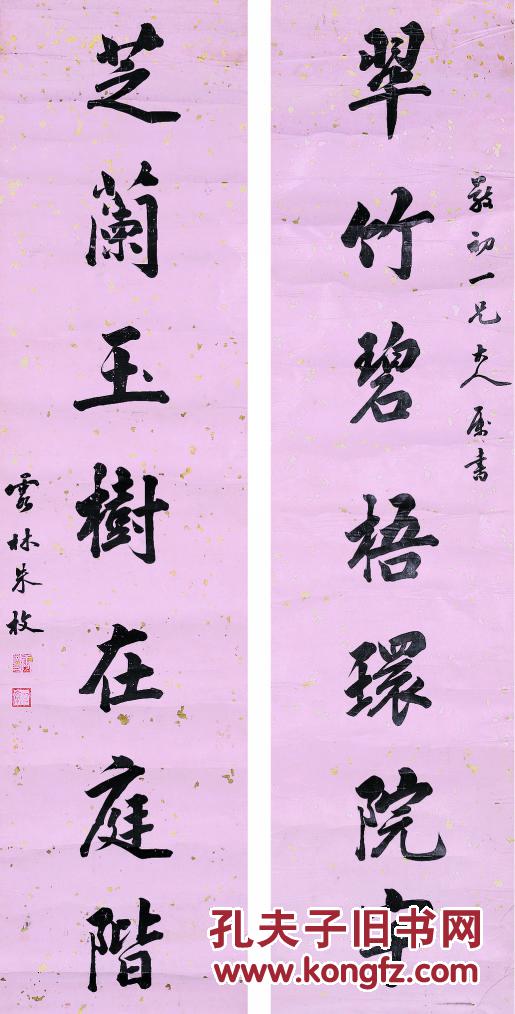 翠竹碧梧環院
初一兄大人屬書
芝蘭玉樹在庭階
林朱枚
孔夫子旧书网
www.kongfz.com